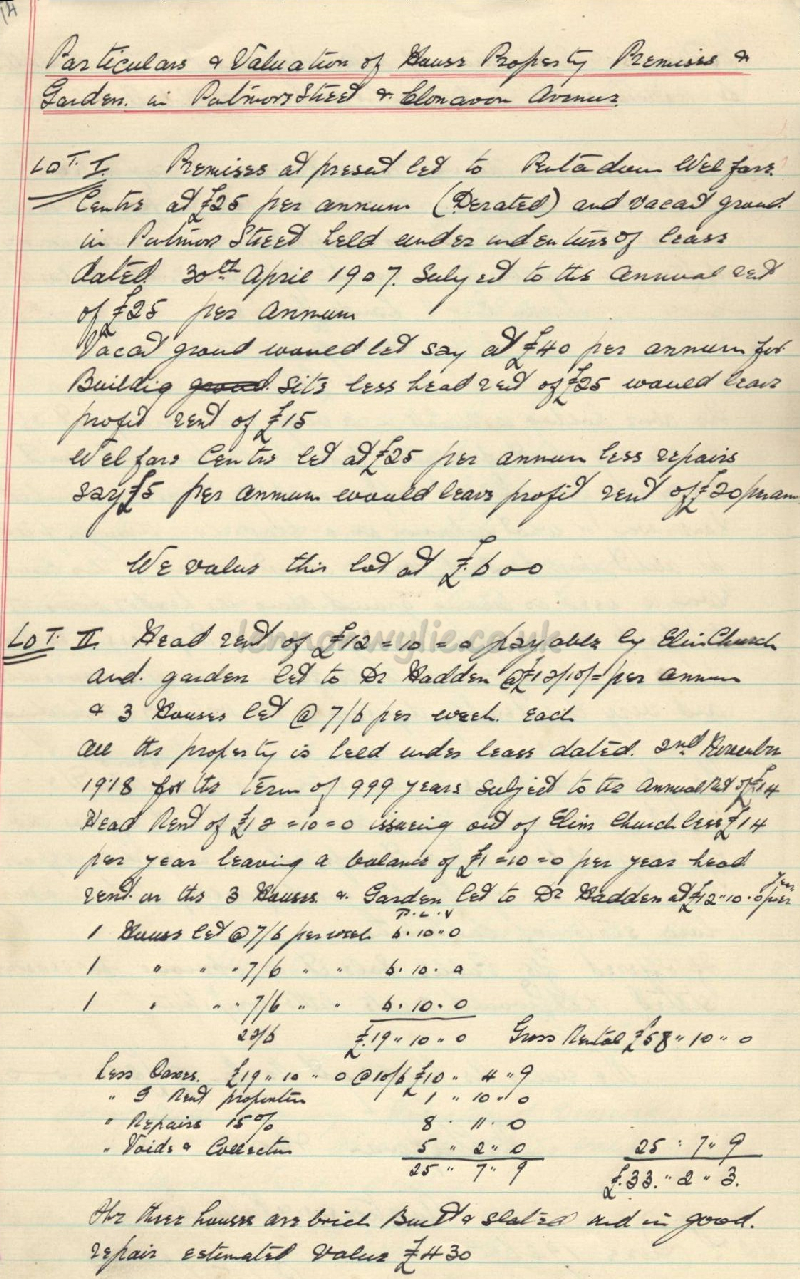 14
Particulars & Valuation of House Property Premises &
Garden. in Patmore Street & Clonavon Avenue
LOT. I. Premises at present let to Welfare
Centre at £25 per annum (Derated) and vacant ground
in Patmore Street held under indenture of lease
dated 30th April 1907. Subject to the annual rent
of £25 per annum
Vacant ground would let say at £40 per annum for
Building ground. Site less head rent of £25 would leave
profit rent of £15
Welfare Centre let at £25 per annum less repairs
say £5 per annum would leave profit rent of £20 per ann
We value this lot at £600
LOT. II Head rent of £12=10=0 payable by Elim Church
and. garden let to Dr Hadden @ £12/10/= per annum
& 3 Houses let @ 7/6 per week. each
all the property is held under lease dated. 2nd November
1918 for the term of 999 years subject to the annual rent of £14
Head Rent of £12=10=0 issuing out of Elim Church less £14
per year leaving a balance of £1=10=0 per year head
rent on the 3 Houses & Garden let to Dr Hadden at £12-10-0 per year
P.L.V
1 House let @ 7/6 per week 6.10.0
1 " " " 7/6 " " 6.10.0
1 " " " 7/6 " " 6.10.0
22/6 £19"10"0 Gross Rental £58"10"0
Less Taxes. £19"10"0 @ 10/6 £10"4"9
" G Rent proportion 1"10"0
" Repairs 15% 8.11.0
" Voids & Collection 5"2"0 25"7"9
25"7"9 £33."2"3.
The three houses are brick Built & slated and in good.
repair estimated value £430